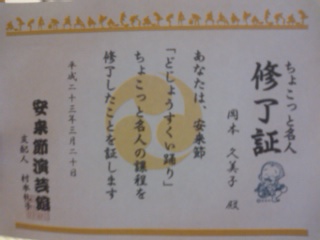 ちょこっと名人
修了証
岡本 久美子 殿
あなたは、安来節
「どじょうすくい踊り」
ちょこっと名人の課程を
修了したことを証します
平成二十三年三月二十日
安来節演芸館
支配人